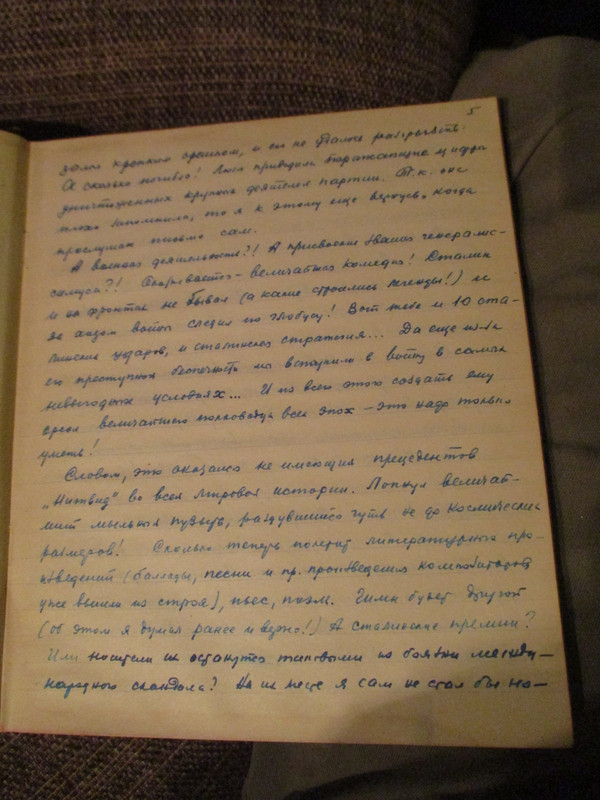 5
зался крепким орешком, и он не дался
А сколько погибло! Люся приводила поражающие цифры
уничтоженных крупных деятелей партии. Т.к. она
плохо запомнила, то я к этому еще вернусь, когда
прослушаю письмо сам.
А военная деятельность?! А присвоение звания генералис-
симуса?! Оказывается – величайшая комедия! Сталин
и на фронтах не бывал (а какие строились легенды!) и
за ходом войны следил по глобусу! Вот тебе и 10 ста-
линских ударов, и сталинская стратегия... Да еще из-за
его преступной беспечности мы вступили в войну в самых
невыгодных условиях... И из всего этого создать ему
ореол величайшего полководца всех эпох – это надо только
уметь!
Словом, это оказался не имеющий прецедентов
во всей мировой истории. Лопнул величай-
ший мыльный пузырь, раздувшийся чуть не до космических
размеров! Сколько теперь полетит литературных про-
изведений (баллады, песни и пр. произведения композиторов
уже вышли из строя), пьес, поэм. Гимн будет другой
(об этом я думал ранее и вдно!) А сталинские премии?
Или носители их останутся таковыми из боязни между-
народного скандала? На их месте я сам не стал бы но-